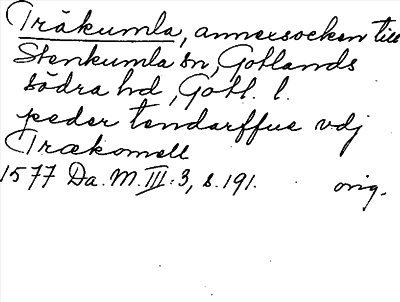 Träkumla, annexsocken till
Stenkumla sn, Gotlands
södra hd, Gotl. l.
peder tendarffue vdj
Trækomell
1577 Da. M. III:3, s. 191. orig.